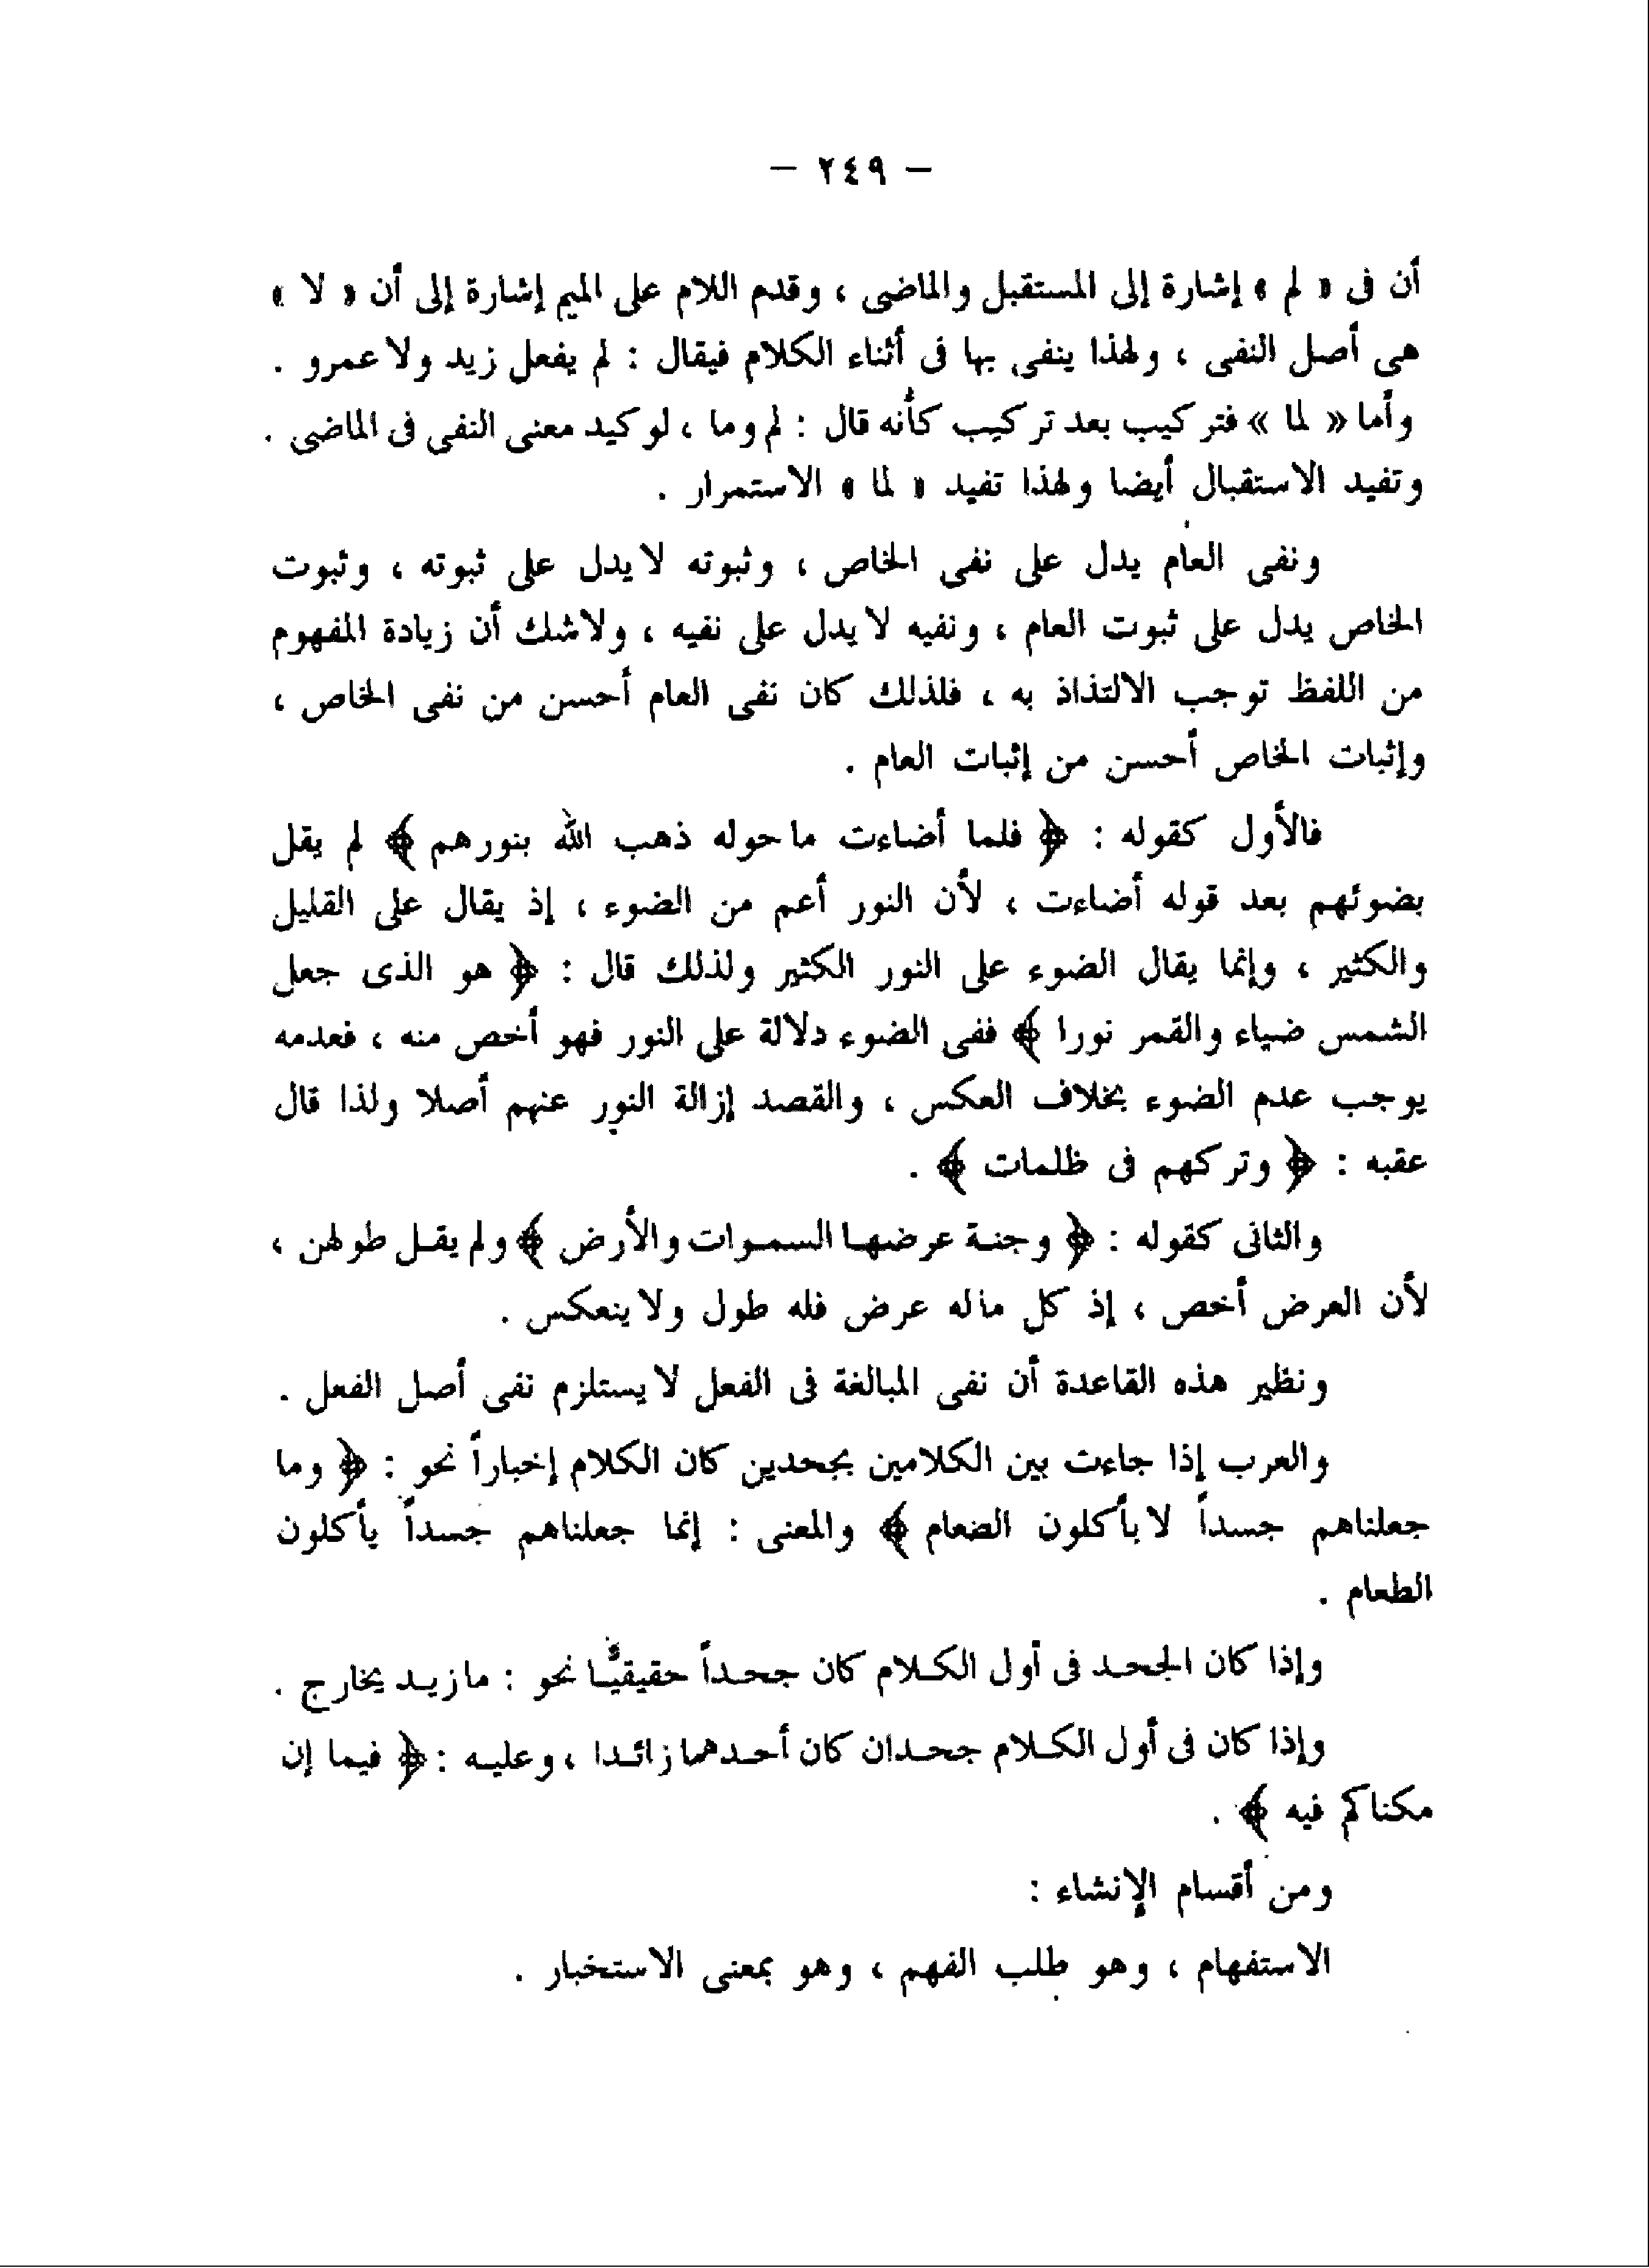 — ٢٤٩ —
أن فى « لم » إشارة إلى المستقبل والماضى ، وقدم اللام على الميم إشارة إلى أن « لا »
هى أصل النفى ، ولهذا ينفى بها فى أثناء الكلام فيقال : لم يفعل زيد ولا عمرو .
وأما « لما » فتركيب بعد تركيب كأنه قال : لم وما ، لوكيد معنى النفى فى الماضى .
وتفيد الاستقبال أيضا ولهذا تفيد « لما » الاستمرار .
ونفى العام يدل على نفى الخاص ، وثبوته لا يدل على ثبوته ، وثبوت
الخاص يدل على ثبوت العام ، ونفيه لا يدل على نفيه ، ولاشك أن زيادة المفهوم
من اللفظ توجب الالتذاذ به ، فلذلك كان نفى العام أحسن من نفى الخاص ،
وإثبات الخاص أحسن من إثبات العام .
فالأول كقوله : ﴿ فلما أضاءت ماحوله ذهب الله بنورهم ﴾ لم يقل
بضوئهم بعد قوله أضاءت ، لأن النور أعم من الضوء ، إذ يقال على القليل
والكثير ، وإنما يقال الضوء على النور الكثير ولذلك قال : ﴿ هو الذى جعل
الشمس ضياء والقمر نورا ﴾ ففى الضوء دلالة على النور فهو أخص منه ، فعدمه
يوجب عدم الضوء بخلاف العكس ، والقصد إزالة النور عنهم أصلا ولذا قال
عقبه : ﴿ وتركهم فى ظلمات ﴾ .
والثانى كقوله : ﴿ وجنة عرضها السموات والأرض ﴾ ولم يقل طولهن ،
لأن العرض أخص ، إذ كل ماله عرض فله طول ولا ينعكس .
ونظير هذه القاعدة أن نفى المبالغة فى الفعل لا يستلزم نفى أصل الفعل .
والعرب إذا جاءت بين الكلامين بجحدين كان الكلام إخباراً نحو : ﴿ وما
جعلناهم جسداً لا يأكلون الضعام ﴾ والمعنى : إنما جعلناهم جسداً يأكلون
الطعام .
وإذا كان الجحد فى أول الكلام كان جحداً حقيقيًّا نحو : مازيد بخارج .
وإذا كان فى أول الكلام جحدان كان أحدهما زائدا ، وعليه : ﴿ فيما إن
مكناكم فيه ﴾ .
ومن أقسام الإنشاء :
الاستفهام ، وهو طلب الفهم ، وهو بمعنى الاستخبار .